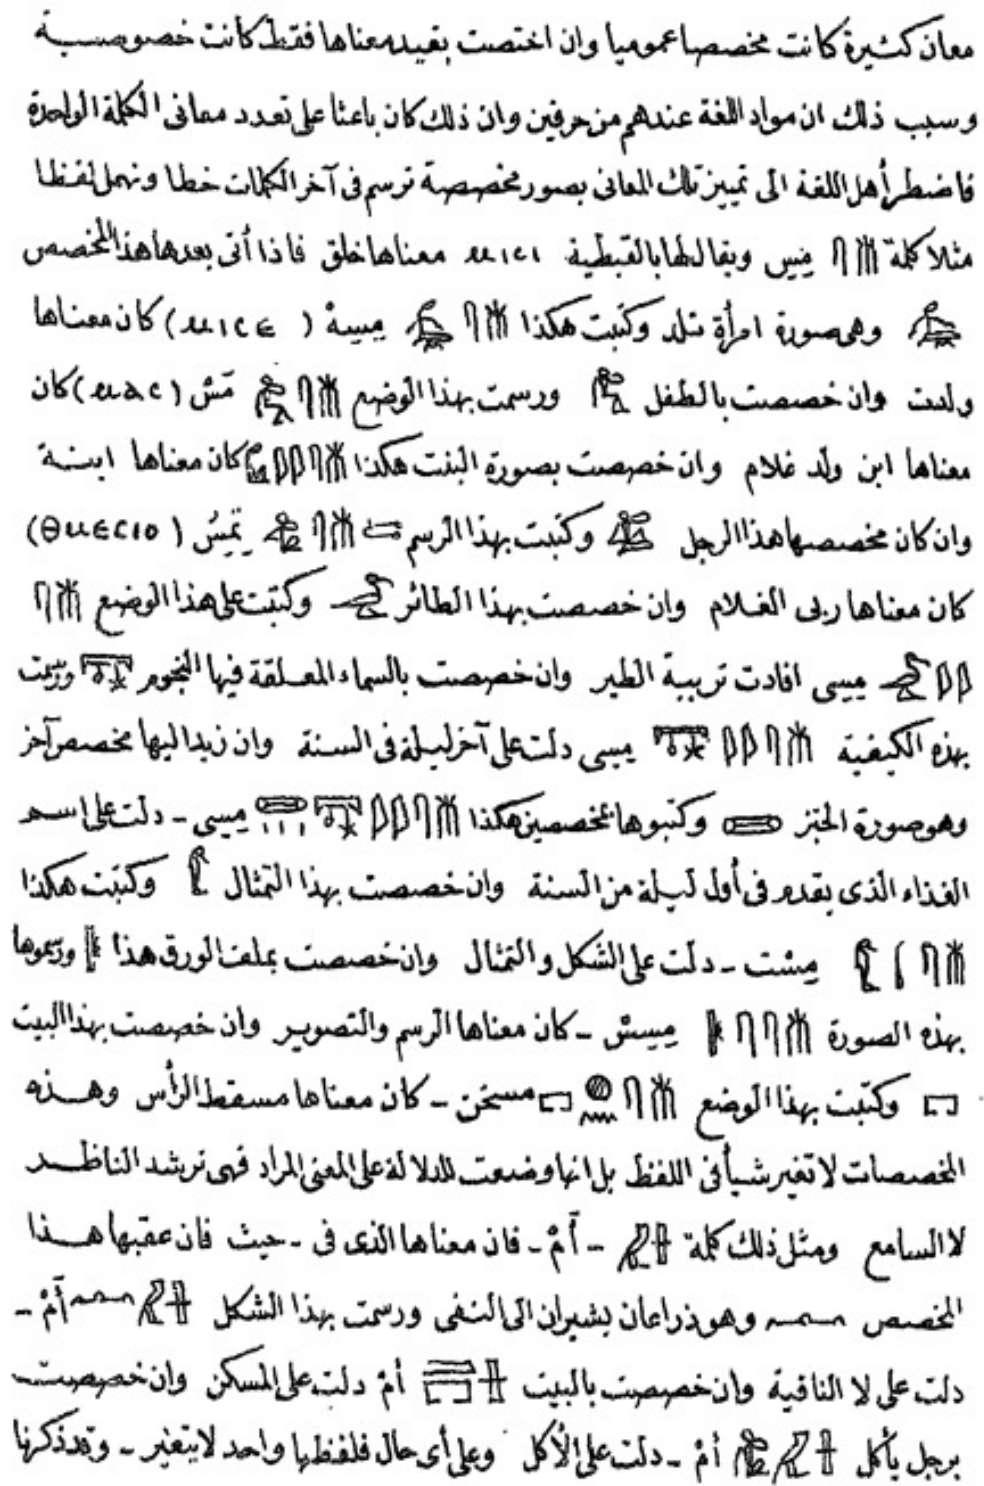 معان كثيرة كانت مخصصا عموميا وان اختصت بقيد معناها فقط كانت خصوصية
وسبب ذلك ان مواد اللغة عندهم من حرفين وان ذلك كان باعثا على تعدد معانى الكلمة الواحدة
فاضطر أهل اللغة الى تمييز تلك المعانى بصور مخصصة ترسم فى آخر الكلمات خطا وتهمل لفظا
مثلا كلمة 𓄟𓋴 ميس ويقال لها بالقبطية ⲙⲓⲥⲓ معناها خلق فاذا أتى بعدها هذا المخصص
𓁒 وهى صورة امرأة تلد وكتبت هكذا 𓄟𓋴𓁒 ميسه (ⲙⲓⲥⲉ) كان معناها
ولدت وان خصصت بالطفل 𓀔 ورسمت بهذا الوضع 𓄟𓋴𓀔 مَسْ (ⲙⲁⲥ) كان
معناها ابن ولد غلام وان خصصت بصورة البنت هكذا 𓄟𓋴𓇋𓇋 كان معناها ابنة
وان كان مخصصها هذا الرجل وكتبت بهذا الرسم 𓄟𓋴 تمِسُ (ⲑⲙⲉⲥⲓⲟ)
كان معناها ربى الغلام وان خصصت بهذا الطائر وكتبت على هذا الوضع 𓄟𓋴
𓇋𓇋 ميسى افادت تربية الطير وان خصصت بالسماء المعلقة فيها النجوم 𓇰 ورسمت
بهذه الكيفية 𓄟𓋴𓇋𓇋𓇰 ميسى دلت على آخر ليلة فى السنة وان زيد اليها مخصص آخر
وهو صورة الخبز وكتبوها بمخصصين هكذا 𓄟𓋴𓇋𓇋𓇰 ميسى - دلت على اسم
الغذاء الذى يقدم فى أول ليلة من السنة وان خصصت بهذا التمثال 𓀾 وكتبت هكذا
𓄟𓋴𓀾 مِسْت - دلت على الشكل والتمثال وان خصصت بملف الورق هذا ورسموها
بهذه الصورة 𓄟𓋴𓋴 ميسْ - كان معناها الرسم والتصوير وان خصصت بهذا البيت
𓉐 وكتبت بهذا الوضع 𓄟𓋴𓐍𓈖𓉐 مسخن - كان معناها مسقط الرأس وهذه
المخصصات لا تغير شيأ فى اللفظ بل انها وضعت للدلالة على المعنى المراد فهى ترشد الناظر
لا السامع ومثل ذلك كلمة 𓇋𓅓 - أَمْ - فان معناها الذى فى - حيث فان عقبها هذا
المخصص 𓂜 وهو ذراعان يشيران الى النفى ورسمت بهذا الشكل 𓇋𓅓𓂜 أَمْ -
دلت على لا النافية وان خصصت بالبيت أمْ دلت على المسكن وان خصصت
برجل يأكل 𓀁 أمْ - دلت على الأكل وعلى أى حال فلفظها واحد لا يتغير - وقد ذكرنا